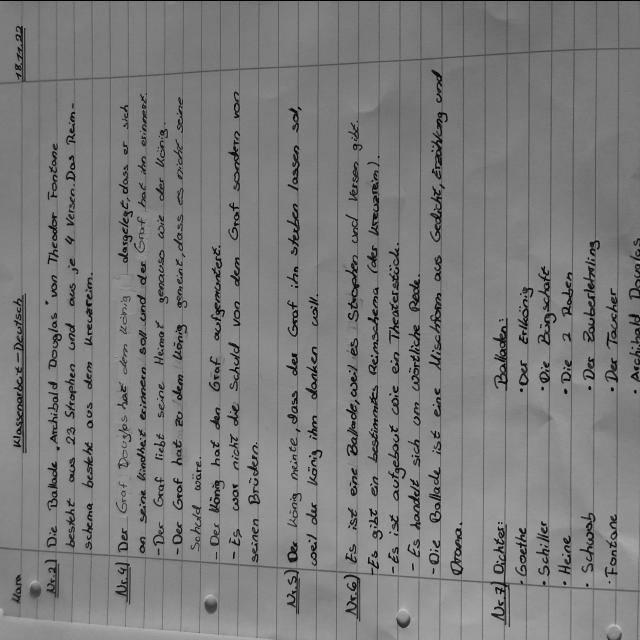 Klassenarbeit-Deutsch 18.11.22
Nr.2) Die Ballade "Archibald Douglas" von Theodor Fontane
besteht aus 23 Strophen und aus je 4 Versen. Das Reim-
schema besteht aus dem Kreuzreim.
Nr.4) Der Graf Douglas hat dem König dargelegt, dass er sich
an seine Kindheit erinnern soll und der Graf hat ihn erinnert.
- Der Graf liebt seine Heimat genauso wie der König.
- Der Graf hat zu dem König gemeint, dass es nicht seine
Schuld wäre.
- Der König hat den Graf aufgemuntert.
- Es war nicht die Schuld von dem Graf sondern von
seinen Brüdern.
Nr.5) Der König meinte, dass der Graf ihn sterben lassen soll,
weil der König ihm danken will.
Nr.6) Es ist eine Ballade, weil es Strophen und Versen gibt.
- Es gibt ein bestimmtes Reimschema (der Kreuzreim).
- Es ist aufgebaut wie ein Theaterstück.
- Es handelt sich um wörtliche Rede.
- Die Ballade ist eine Mischform aus Gedicht, Erzählung und
Drama.
Nr.7) Dichter: Balladen:
• Goethe • Der Erlkönig
• Schiller • Die Bürgschaft
• Heine • Die 2 Raben
• Schwab • Der Zauberlehrling
• Fontane • Der Taucher
• Archibald Douglas